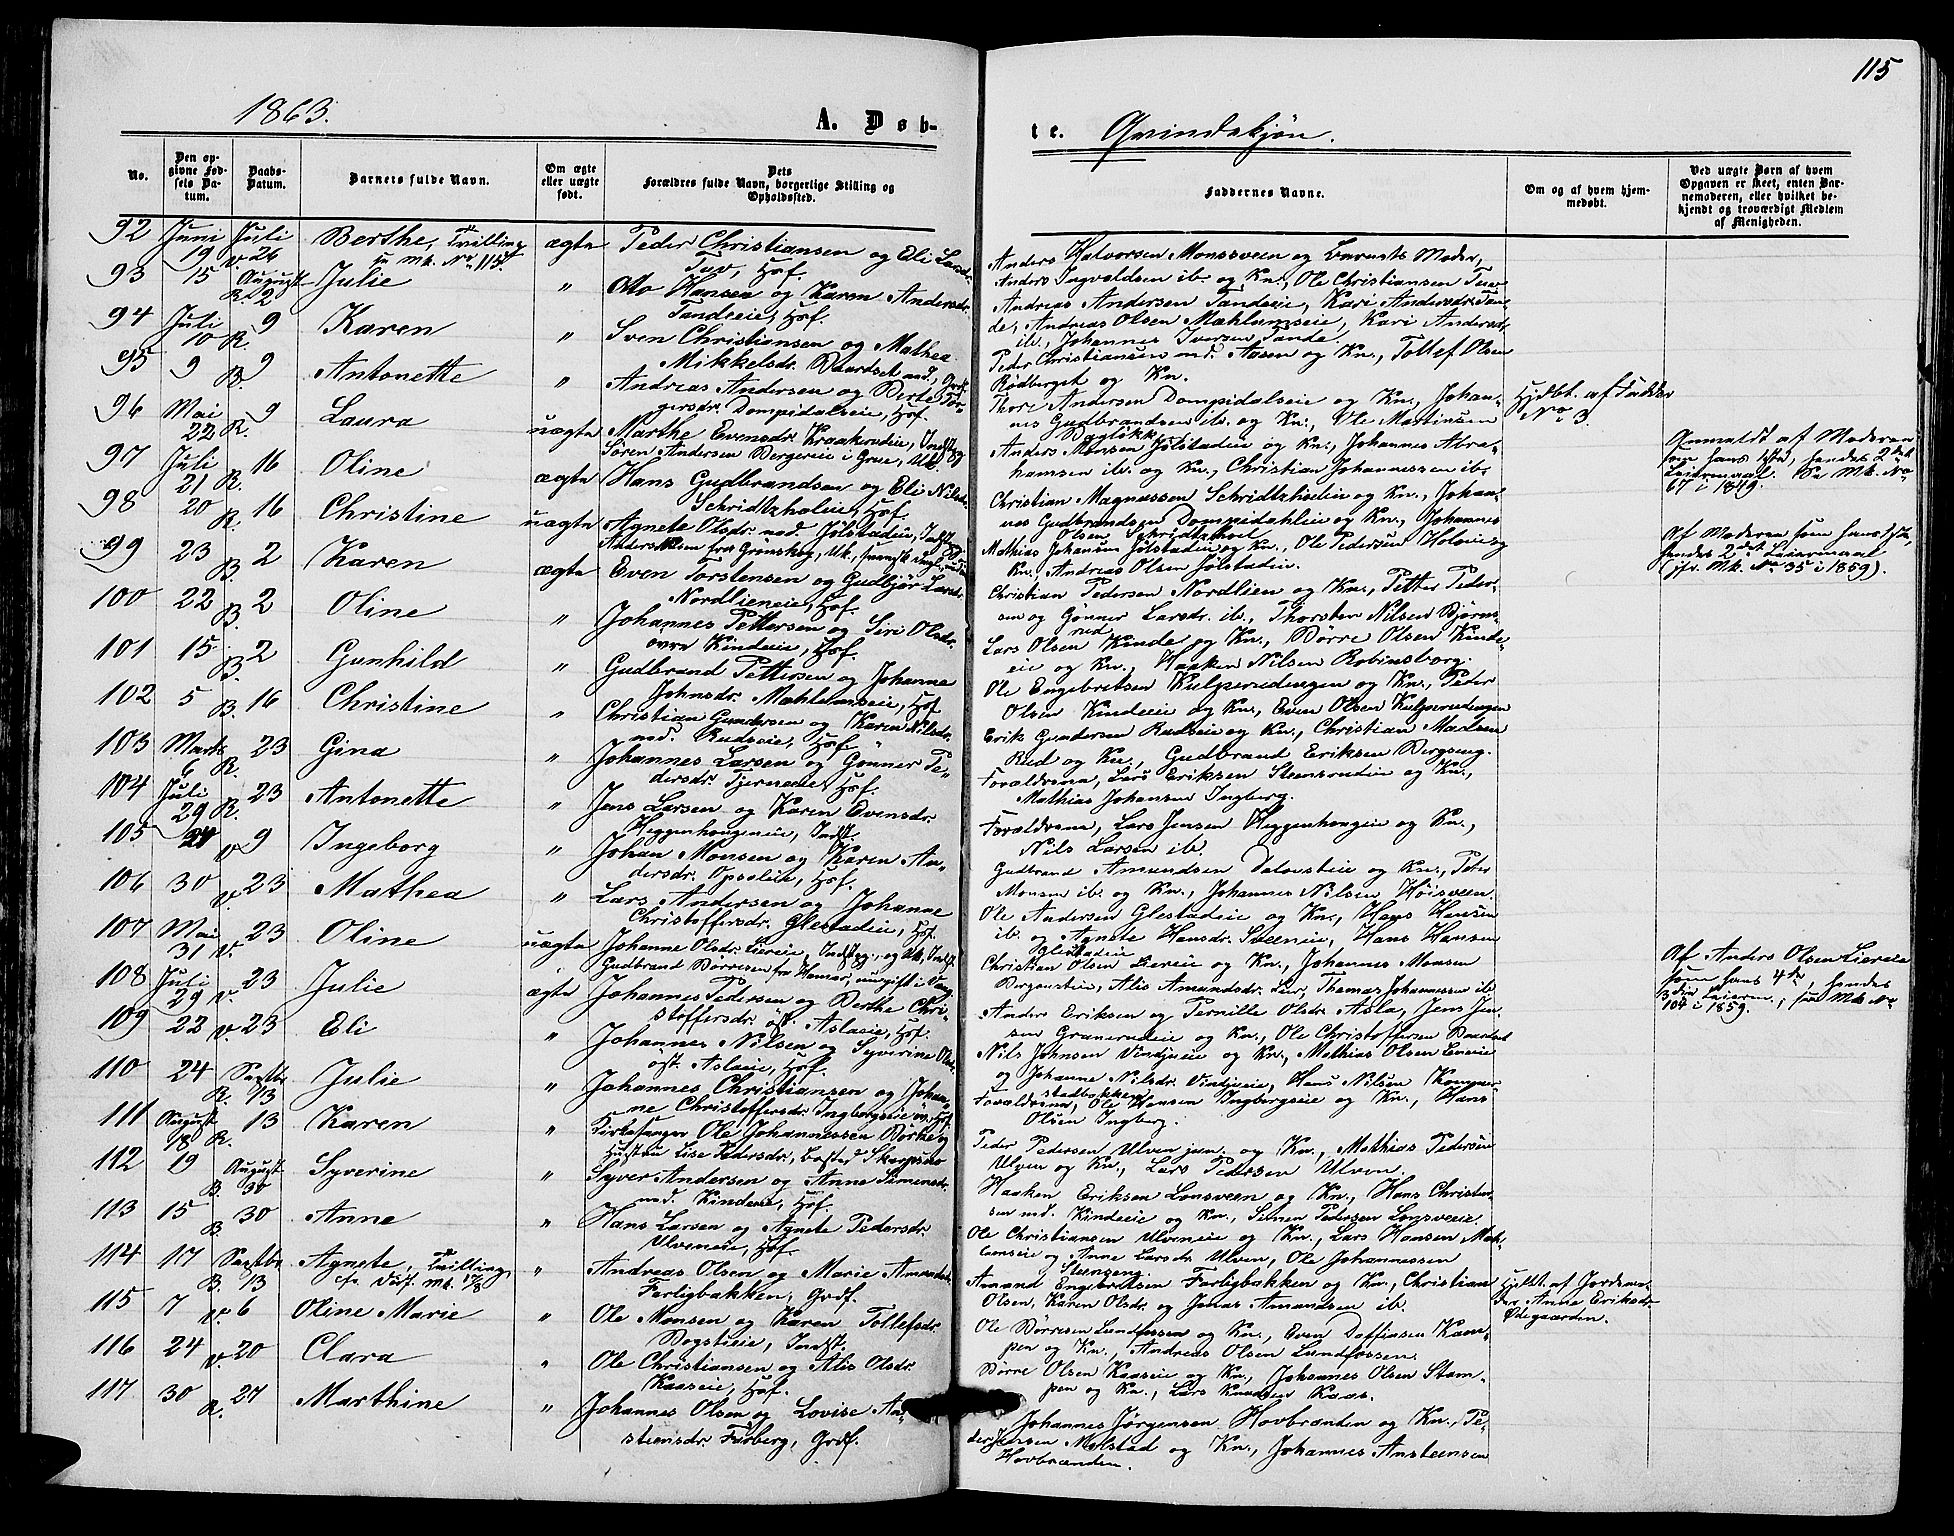 115
1863.
A. Døb-
te. Qvindekjøn.
No.
Den opgivne Fødsels Datum.
Daabs-Datum.
Barnets fulde Navn.
Om ægte eller uægte født.
Dets Forældres fulde Navn, borgerlige Stilling og Opholdssted.
Faddernes Navne.
Om og af hvem hjemmedøbt.
Ved uægte Børn af hvem Opgaven er skeet, enten Barnemoderen, eller hvilket bekjendt og troværdigt Medlem af Menigheden.
92 Juni 19 Juli V. 26 Berthe, Tvilling ægte Peder Christiansen og Eli Larsdr.
Hof.
Anders Halvorsen Monssveen og Barnets Moder,
Anders Ingvaldsen ib. og Kn., Ole Christiansen
93 15 August R. 2 Julie " Otto Hansen og Karen Andersdr.
Tandeeie, Hof.
Andreas Andersen Tandeeie, Kari Andersdr. Tan-
de, Andreas Olsen Mæhlumseie, Kari Andersdr.
ib., Johannes Iversen Tande.
94 Juli 10 R. 9 Karen " Sven Christiansen og Mathea
Mikkelsdr. Baardset
Peder Christiansen nd. Aasen og Kn., Tollef Olsen
Rødberget og Kn.
95 9 B. 9 Antonette " Andreas Andersen og Berte Tor-
gersdr. Dompidalseie, Hof.
Thore Andersen Dompidalseie og Kn., Johan-
nes Gudbrandsen ib. og Kn., Ole Martinsen
Hjdbt. af Fadder
No 3.
96 Mai 22 R. 9 Laura uægte Marthe Evensdr. Kraakerudeie,
Søren Andersen Bergereie i Grue,
Anders Monsen Jølstadeie og Kn., Johannes Abra-
hamsen ib. og Kn., Christian Johannessen ib.
Anmeldt af Moderen
som hans 1ste, hendes 2det
Leiermaal. Se Mk. No
67 i 1849.
97 Juli 21 R. 16 Oline ægte Hans Gudbrandsen og Eli Nilsdr.
Hof.
Christian Magnussen og Kn., Johan-
nes Gudbrandsen Dompidahleie og Kn., Johannes
Olsen
98 20 R. 16 Christine uægte Agnete Olsdr. Jølstadeie,
Mathias Johansen Jølstadeie og Kn., Ole Pedersen
Kn., Andreas Olsen Jølstadeie.
Af Moderen som hans 1ste,
hendes 2det Leiermaal
(jfr. Mk. No 35 i 1859).
99 23 B. 2 Karen ægte Even Torstensen og Gudbjør Larsdr.
Nordlieneie, Hof.
Christian Pedersen Nordlien og Kn., Petter Peder-
sen og Gønner Larsdr. ib., Thorsten Nilsen Bjørns-
rud
100 22 B. 2 Oline " Johannes Pettersen og Siri Olsdr.
øvre Kindeeie, Hof.
Lars Olsen Kinde og Kn., Børre Olsen Kinde-
eie og Kn., Haaken Nilsen Robinsborg.
101 15 B. 2 Gunhild " Gudbrand Pettersen og Johanne
Johnsdr. Mæhlumseie, Hof
Ole Engebretsen Kulperudengen og Kn., Peder
Olsen Kindeeie og Kn., Even Olsen Kulperudengen
102 5 B. 16 Christine " Christian Gundersen og Karen Nilsdr.
nd. Rudseie, Hof.
Erik Gundersen Rudseie og Kn., Christian Madsen
Rud og Kn., Gudbrand Eriksen Bergseng.
103 Marts 6 R. 23 Gina " Johannes Larsen og Gønner Pe-
dersdr. Tjerneneie, Hof.
Forældrene, Lars Eriksen Steensrudeie og Kn.,
Mathias Johansen Ingberg.
104 Juli 29 R. 23 Antonette " Jens Larsen og Karen Evensdr.
Heggenhougeneie, Indst.
Forældrene, Lars Jensen Heggenhougeie og Kn.,
Nils Larsen ib.
105 V. 9 Ingeborg " Johan Monsen og Karen An-
dersdr. Opsaleie, Hof.
Gudbrand Amundsen og Kn., Peter
Monsen ib. og Kn., Johannes Nilsen Høisveen.
106 30 V. 23 Mathea " Lars Andersen og Johanne
Christoffersdr. Glestadeie, Hof.
Ole Andersen Glestadeie og Kn., Hans Hansen
ib. og Agnete Hansdr. Sveeneie, Hans Hansen
Glestadeie
107 Mai 31 V. 23 Oline uægte Johanne Olsdr. Liereie,
Gudbrand Børresen fra Hamar, ungift
Christian Olsen Liereie og Kn., Johannes Monsen
Alis Amundsdr. Lier, Thomas Johannessen ib
Af Anders Olsen Liereie
som hans 4de, hendes
3die Leierm., jfr. Mk. No
104 i 1859.
108 Juli 29 V. 23 Julie ægte Johannes Pedersen og Berthe Chri-
stoffersdr. øst. Aslaeie, Hof.
Anders Eriksen og Pernille Olsdr. Asla, Jens Jen-
sen Granerudeie og Kn., Ole Christoffersen Baardset
109 22 V. 23 Eli " Johannes Nilsen og Syverine Olsdr.
øst. Aslaeie, Hof.
Nils Johnsen Vindjueie og Kn., Mathias Olsen
og Johanne Nilsdr. Vindjueie, Hans Nilsen Kommer-
stadbakken
110 24 Septbr R. 13 Julie " Johannes Christiansen og Johan-
ne Christoffersdr. Ingbergseie
Forældrene, Ole Hansen Ingbergseie og Kn., Hans
Olsen Ingberg.
111 August 18 R. 13 Karen " Kirkesanger Ole Johannessen Børke og
Hustru Lise Pedersdr., bosted
Peder Pedersen Ulven jun. og Kn., Mathias Pedersen
Ulven og Kn., Lars Pedersen Ulven.
112 19 August B. 30 Syverine " Syver Andersen og Anne Simensdr.
nd. Kindeeie, Hof.
Haaken Eriksen Lonsveen og Kn., Hans Christen-
sen nd. Kindeeie og Kn., Simen Pedersen Lonsveeie.
113 15 B. 30 Anne " Hans Larsen og Agnete Pedersdr.
Ulveneie, Hof.
Ole Christiansen Ulveneie og Kn., Lars Hansen Mæh-
lumseie og Anne Larsdr. Ulven, Ole Johannessen
Steenseng
114 17 Septbr B. 13 Agnete, Tvilling, " Andreas Olsen og Marie Amundsdr.
Farligbakken, Grdf.
Amund Engebretsen Farligbakken og Kn., Christian
Olsen, Karen Olsdr. og Jonas Amundsen ib.
Hjdbt. af Jordemo-
der Anne Eriksdr.
Ødegaarden.
115 7 V. 6 Oline Marie " Ole Monsen og Karen Tollefsdr.
Bogstieie, Indst.
Ole Børresen Lundfossen og Kn., Even Doffinsen Kam-
pen og Kn., Andreas Olsen Lundfossen.
116 24 V. 20 Clara " Ole Christiansen og Alis Olsdr.
Kaaseie, Hof.
Børre Olsen Kaaseie og Kn., Johannes Olsen Stam-
pen og Kn., Lars Knudsen Kaas.
117 30 R. 27 Marthine " Johannes Olsen og Lovise An-
steensdr.Førberg, Grdf.
Johannes Jørgensen Hovbrænden og Kn., Pe-
der Jensen Melstad og Kn., Johannes Ansteensen
Hovbrænden.